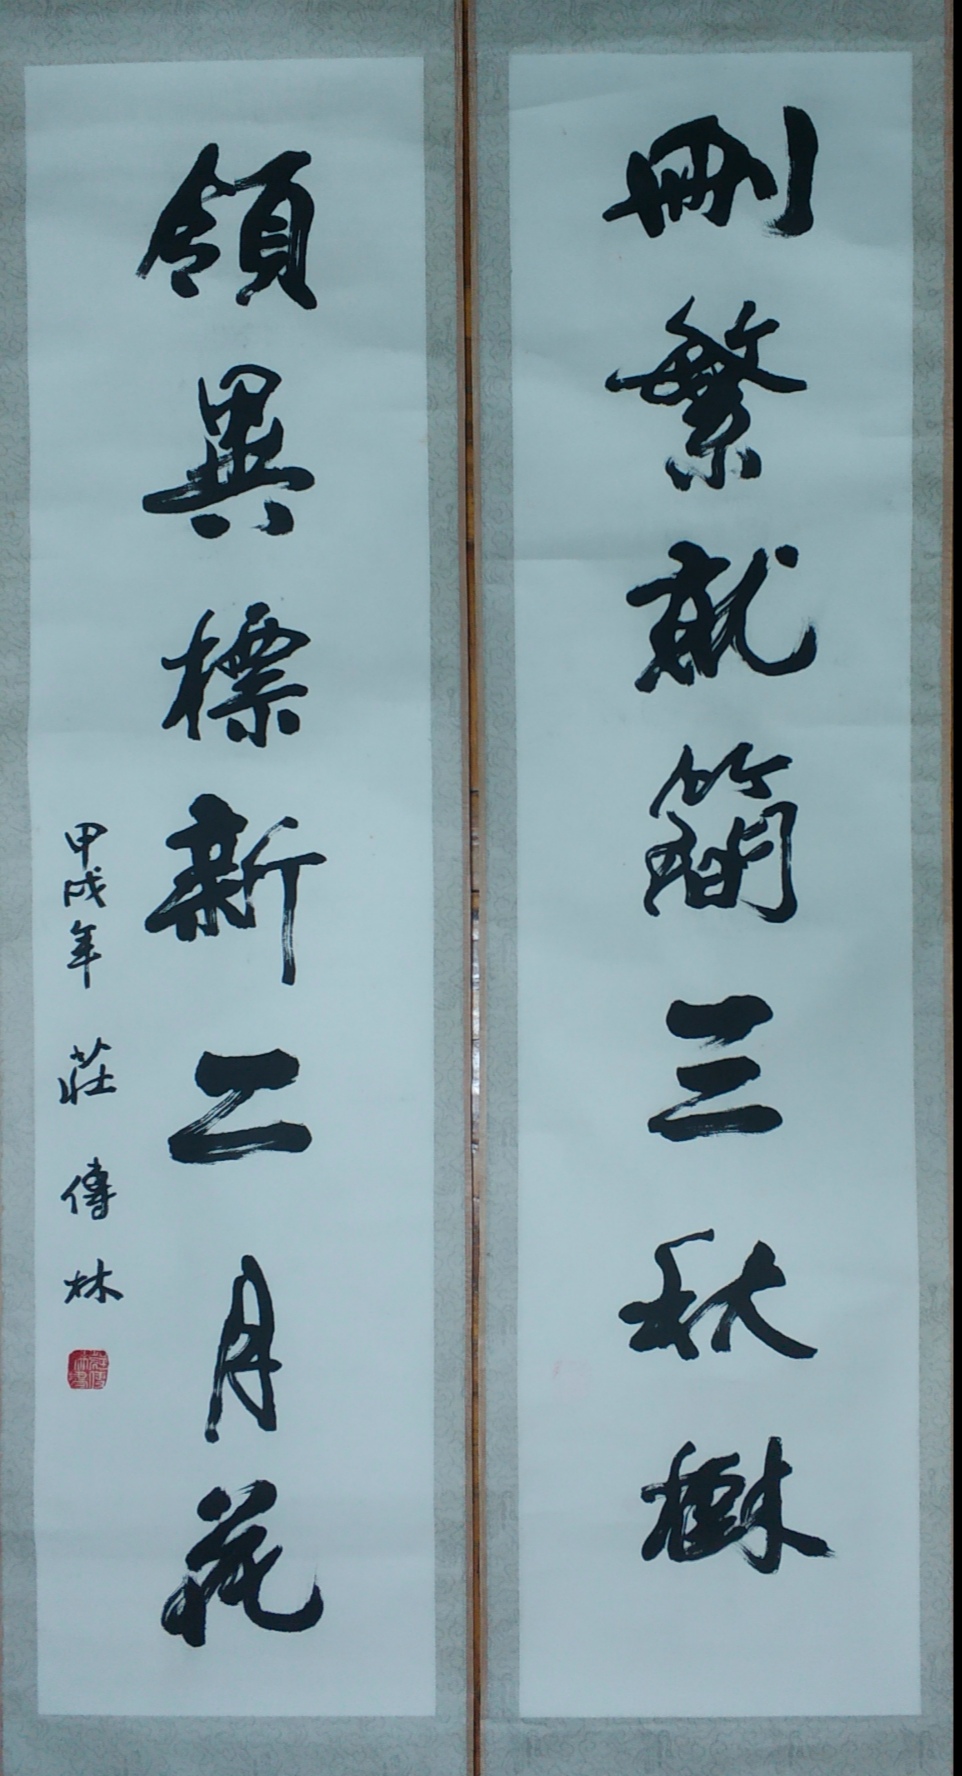 刪繁就簡三秋樹
領異標新二月花
甲戌年 莊傳林